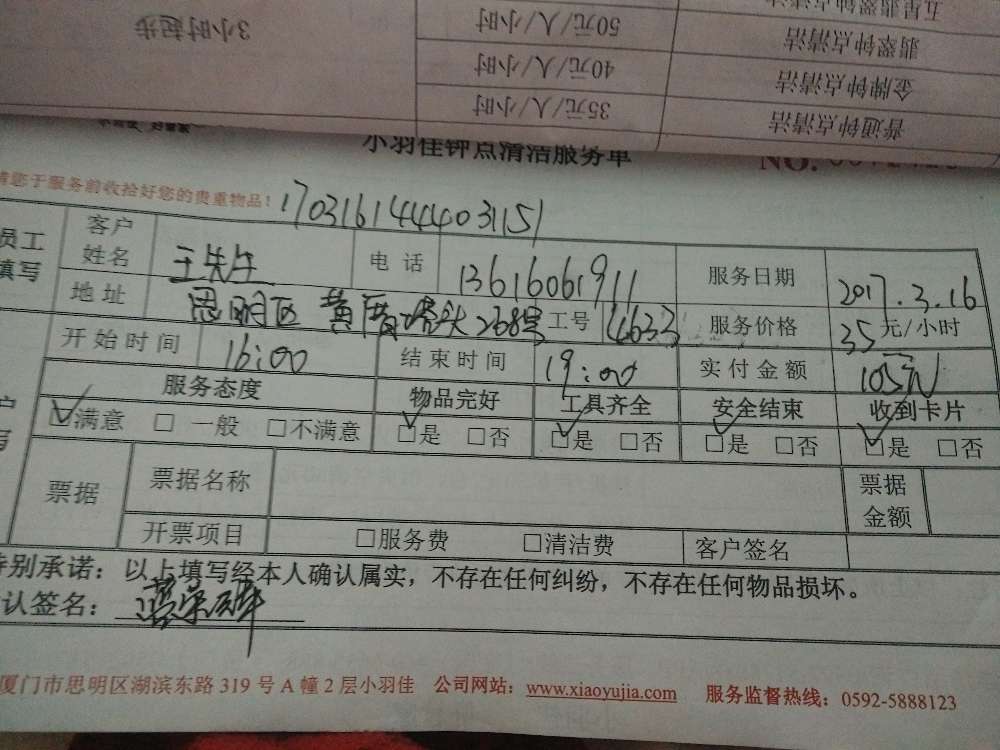 五星翡翠钟点清洁
翡翠钟点清洁 50元/人/小时 3小时起步
金牌钟点清洁 40元/人/小时
普通钟点清洁 35元/人/小时
小羽佳钟点清洁服务单 NO.
请您于服务前收拾好您的贵重物品! 17031614444031151
员工填写 客户姓名 王先生 电话 13616061911 服务日期 2017.3.16
地址 思明区 黄厝塔头268号 工号 14633 服务价格 35元/小时
开始时间 16:00 结束时间 19:00 实付金额 105元
服务态度 物品完好 工具齐全 安全结束 收到卡片
☑满意 □ 一般 □不满意 ☑是 □否 ☑是 □否 ☑是 □否 ☑是 □否
票据 票据名称 票据金额
开票项目 □服务费 □清洁费 客户签名
特别承诺:以上填写经本人确认属实,不存在任何纠纷,不存在任何物品损坏。
认签名:
厦门市思明区湖滨东路 319 号 A 幢 2 层小羽佳 公司网站:www.xiaoyujia.com 服务监督热线:0592-5888123